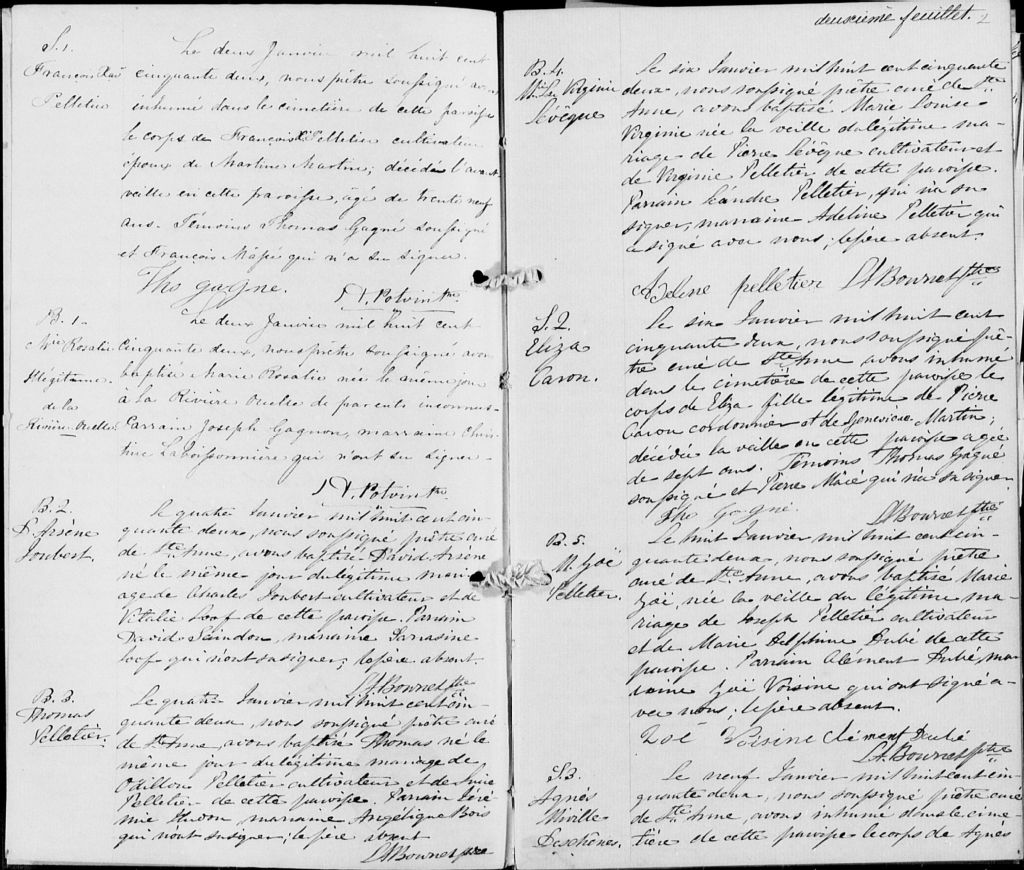 S. 1.
François Xav
Pelletier
Le deux Janvier mil huit cent
cinquante deux, nous prêtre soussigné avons
inhumé dans le cimetière de cette paroisse
le corps de François X Pelletier cultivateur
époux de Martine Martin; décédé l'avant
veille en cette paroisse, âgé de trente neuf
ans. Témoins Thomas Gagné soussigné
et François qui n'a su signer.
Tho gagne. N. Potvin Ptre
B. 1.
Mie Rosalie
Illégitime
de la
Rivière-Ouelle
Le deux Janvier mil huit cent
cinquante deux, nous prêtre soussigné avons
baptisé Marie Rosalie née le même jour
à La Rivière Ouelle de parents inconnus
Parrain Joseph Gagnon, marraine Chris-
tine Laboissonnière qui n'ont su signer
N. Potvin Ptre
B. 2.
D. Arsène
Joubert
Le quatre Janvier mil huit cent cin-
quante deux, nous soussigné prêtre curé
de Ste Anne, avons baptisé David Arsène
né le même jour du légitime mari-
age de Charles Joubert cultivateur et de
Vitalie Loof de cette paroisse. Parrain
David marraine Sarasine
Loof qui n'ont su signer; le père absent.
LA Bourret Ptre
B. 3.
Thomas
Pelletier.
Le quatre Janvier mil huit cent cin-
quante deux, nous soussigné prêtre curé
de Ste Anne, avons baptisé Thomas né le
même jour du légitime mariage de
Odillon Pelletier cultivateur et de Luce
Pelletier de cette paroisse. Parrain Jéré-
mie Hudon marraine Angélique Bois
qui n'ont su signer; le père absent
LA Bourret ptre
deuxième feuillet. 2
B. 4.
M. Lse Virginie
Lévêque
Le six Janvier mil huit cent cinquante
deux, nous soussigné prêtre curé de Ste
Anne, avons baptisé Marie Louise
Virginie née la veille du légitime ma-
riage de Pierre Lévêque cultivateur et
de Virginie Pelletier de cette paroisse.
Parrain Léandre Pelletier, qui n'a su
signer, marraine Adeline Pelletier qui
a signé avec nous; le père absent.
Adeline pelletier LA Bourret Ptre
S. 2.
Eliza
Caron.
Le six Janvier mil huit cent
cinquante deux, nous soussigné prê-
tre curé de Ste Anne avons inhumé
dans le cimetière de cette paroisse le
corps de Eliza fille légitime de Pierre
Caron cordonnier et de Geneviève Martin;
décédée la veille en cette paroisse agée
de sept ans. Témoins Thomas Gagné
soussigné et Pierre qui n'a su signer
Tho Gagné. LA Bourret Ptre
B. 5.
M. Zoé
Pelletier.
Le huit Janvier mil huit cent cin-
quante deux, nous soussigné prêtre
curé de Ste Anne, avons baptisé Marie
Zoé, née la veille du légitime ma-
riage de Joseph Pelletier cultivateur
et de Marie Delphine Dubé de cette
paroisse. Parrain Clément Dubé, mar-
raine Zoé Voisine qui ont signé a-
vec nous; le père absent.
Zoé Voisine Clément Dubé
LA Bourret Ptre
S. 3.
Agnès
Miville
Deschênes.
Le neuf Janvier mil huit cent cin-
quante deux, nous soussigné prêtre curé
de Ste Anne, avons inhumé dans le cime-
tière de cette paroisse le corps de Agnès